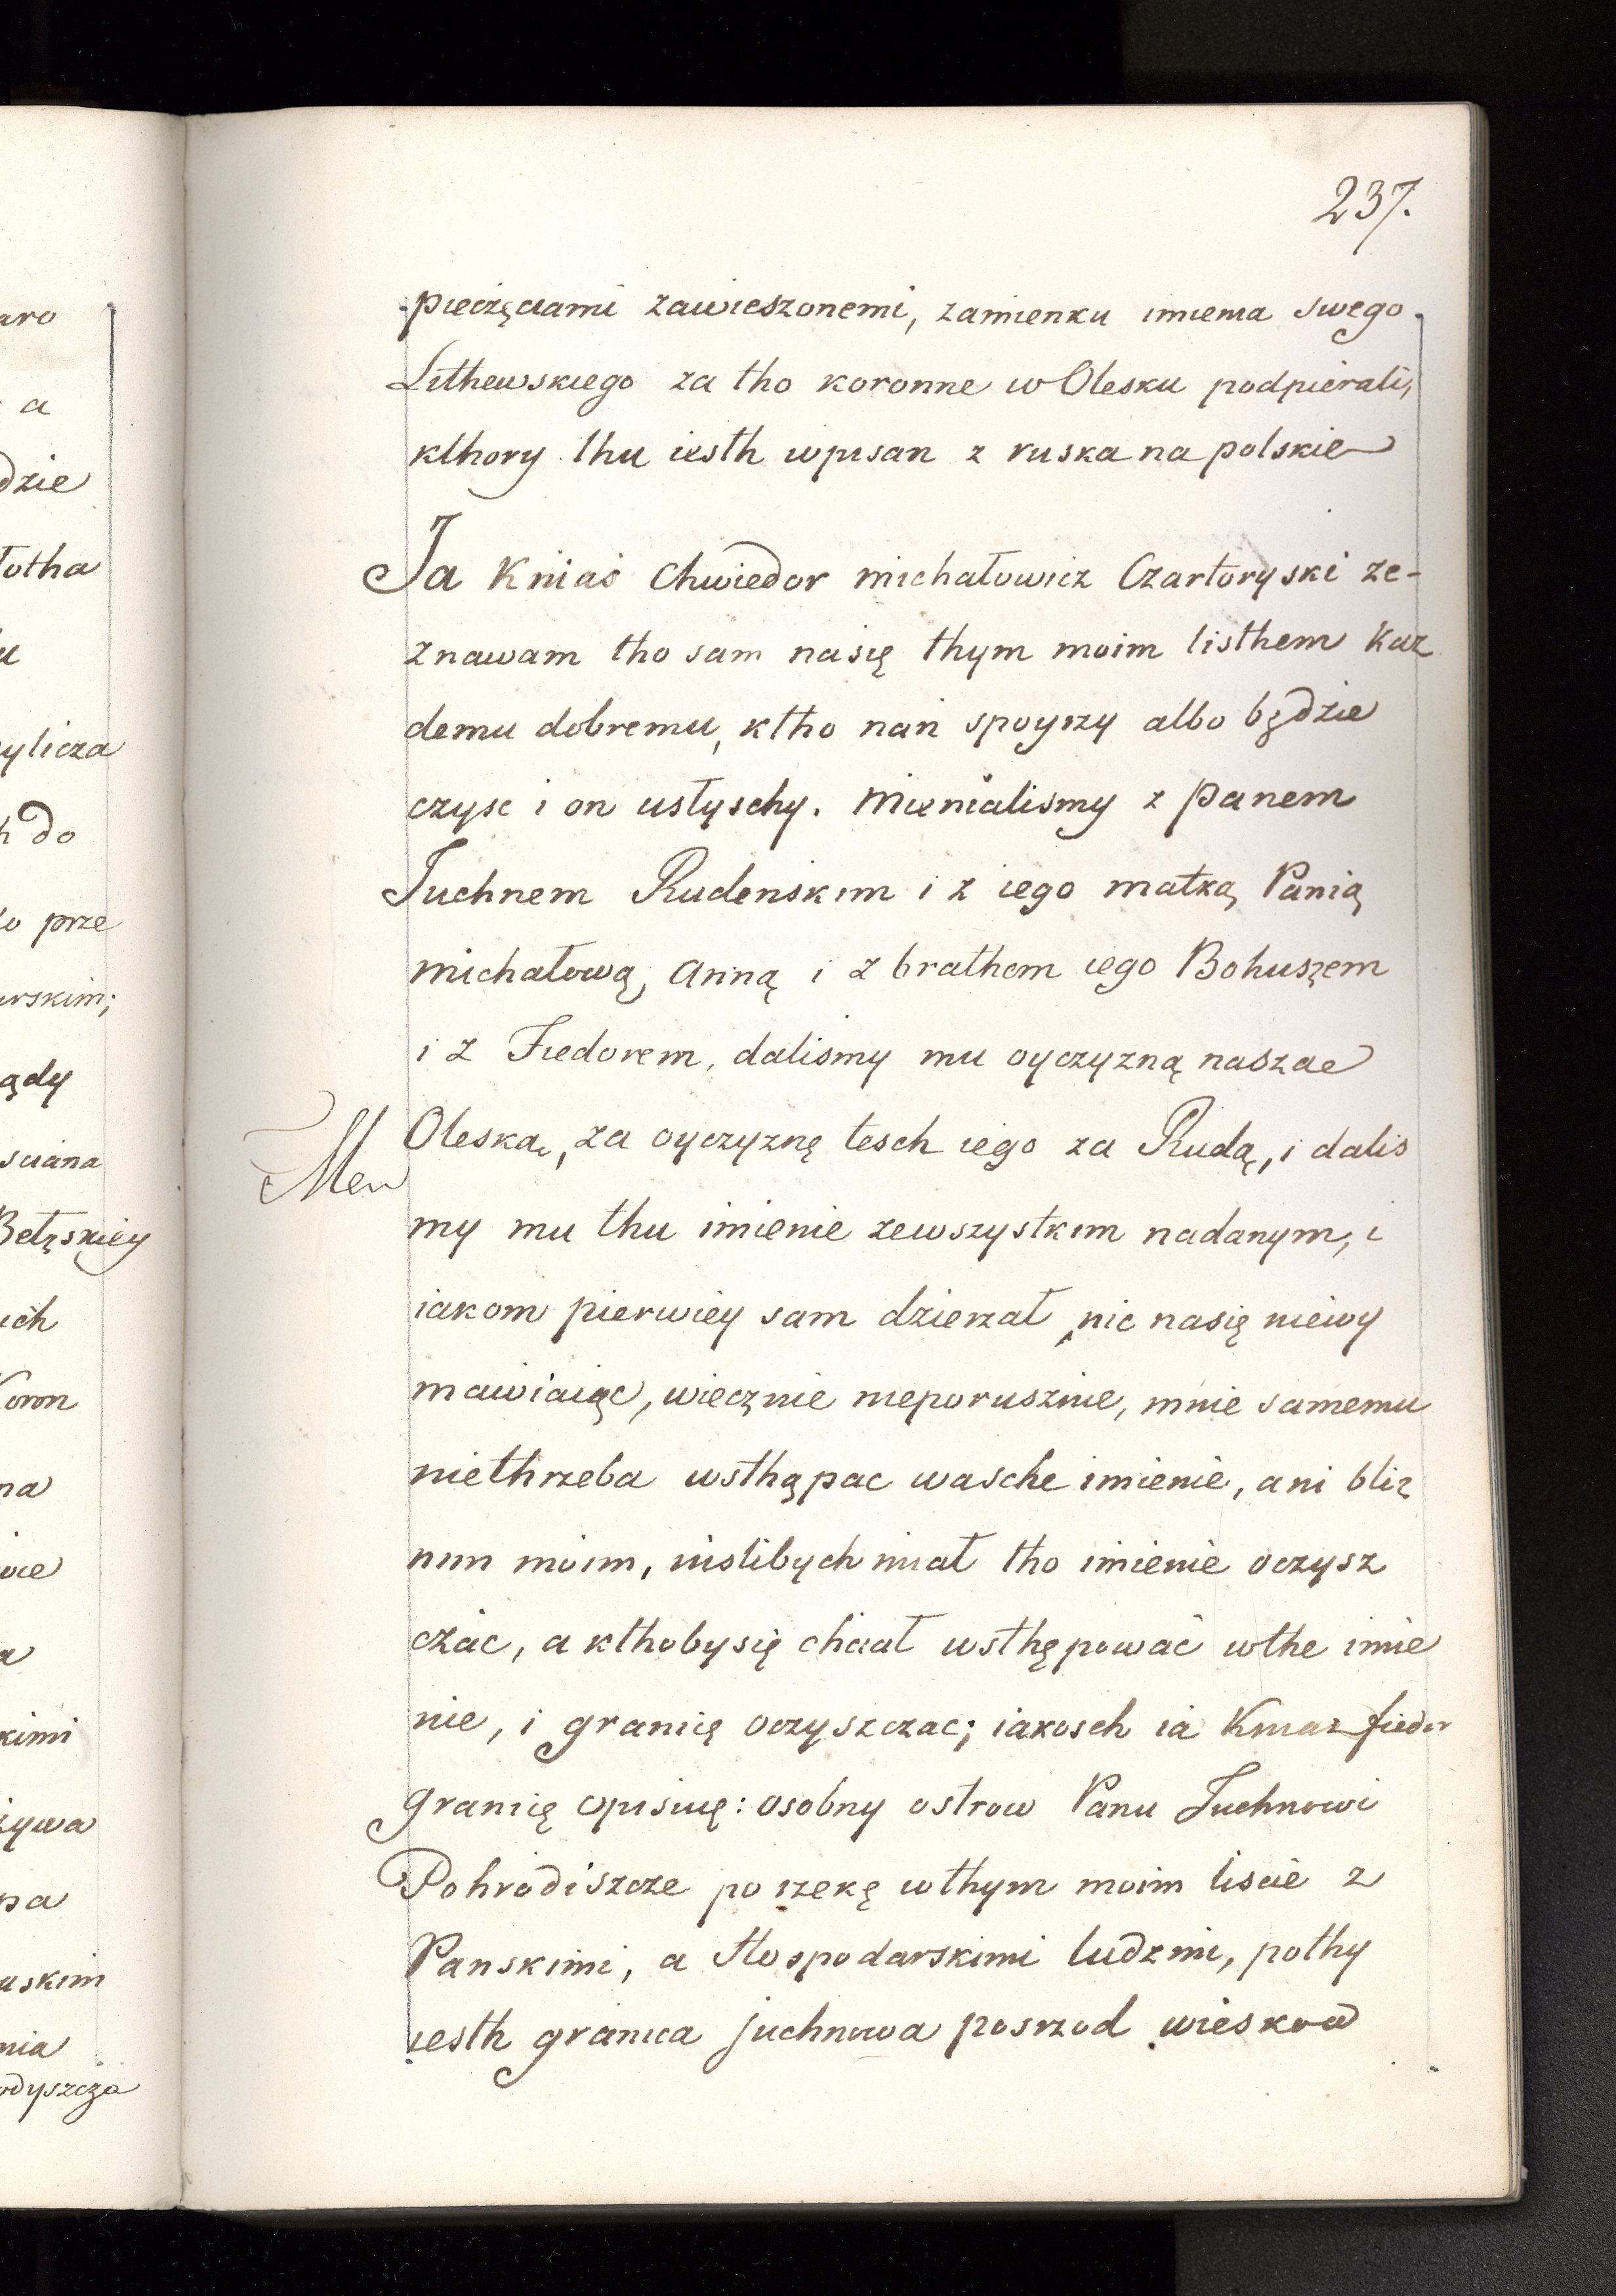 237.
pieczęciami zawieszonemi, zamienku imienia swego
Lithewskiego za tho koronne w Olesku podpierali,
kthory thu iesth wpisan z ruska na polskie
Ja Kniaś Chwiedor michałowicz Czartoryski ze-
znawam tho sam nasię thym moim listhem Kaz
demu dobremu, ktho nań spoyrzy albo będzie
czysc i on usłyschy. Mienialismy z Panem
Juchnem Rudenskim i z iego matką Panią
michałową, Anną i z brathem iego Bohuszem
i z Fiedorem, dalismy mu oyczyzną naszae
Oleska, za oyczyznę tesch iego za Rudą, i dalis
my mu thu imienie zewszystkim nadanym, i
iakom pierwiey sam dzierzał nic nasię niewy
mawiaiąc, wiecznie nieporusznie, mnie samemu
niethrzeba wsthąpac wasche imienie, ani bliz
nim moim, nislibych miał tho imienie oczysz
czać, a kthobysię chciał wsthępować wthe imie
nie, i granię oczyszczac; iakosch ia Kniaz fiedor
granię opisuię: osobny ostrow Panu Juchnowi
Pohrodiszcze po rzekę wthym moim liscie z
Panskimi, a Hospodarskimi ludzmi, pothy
iesth granica juchnowa posrzod wieskow
aro
a
dzie
łotha
ylicza
h do
o prze
wskim;
ądy
sciana
Bełzskiey
ich
Koron
na
kimi
żywa
uskim
nia
odyszcza